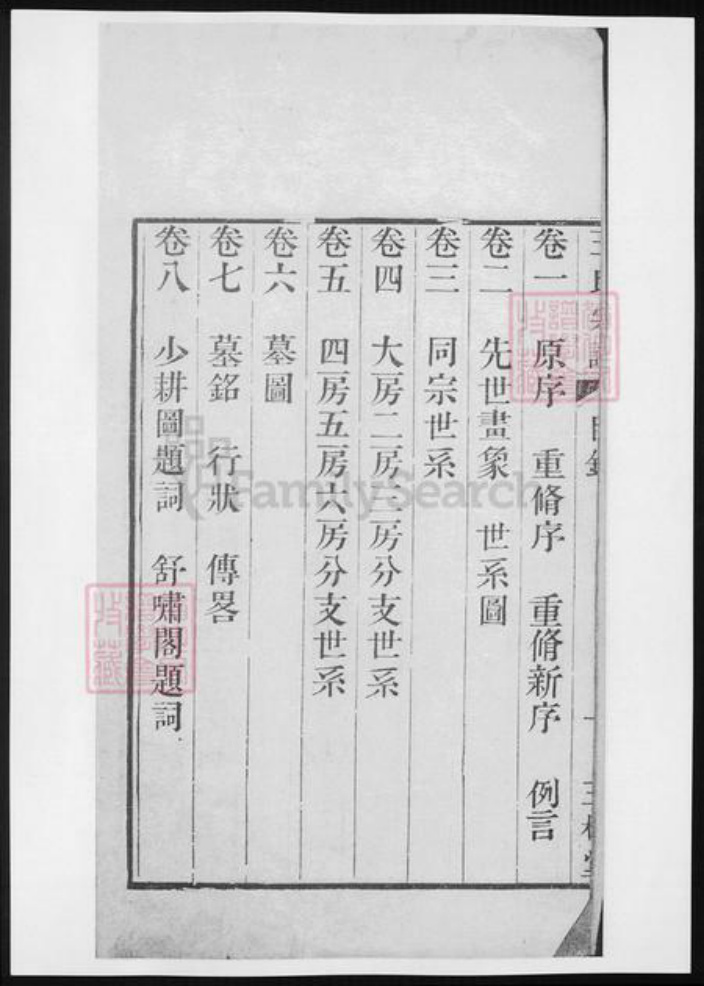 王氏宗譜 目錄 一 三槐堂
卷一 原序 重脩序 重脩新序 例言
卷二 先世畫象 世系圖
卷三 同宗世系
卷四 大房二房三房分支世系
卷五 四房五房六房分支世系
卷六 墓圖
卷七 墓銘 行狀 傳畧
卷八 少耕圖題詞 舒嘯閣題詞
FamilySearch